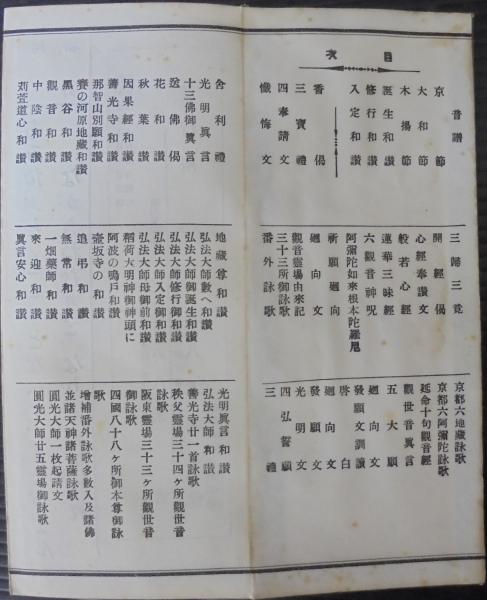 目次
音譜
京節
大和節
木揚節
誕生和讃
修行和讃
入定和讃
香偈
三寶禮
四奉請文
懺悔文
三歸三竟
開經偈
心經奉讃文
般若心經
蓮華三昧經
六觀音神呪
阿彌陀如來根本陀羅尼
祈願廻向
廻向文
觀音靈場由來記
三十三所御詠歌
番外詠歌
京都六地藏詠歌
京都六阿彌陀詠歌
延命十句觀音經
觀世音眞言
五大願
廻向文
發願文訓讀
啓白
發願文
廻向文
光明文
四弘誓願
三禮
舍利禮
光明眞言
十三佛御眞言
送佛偈
花和讃
秋葉讃
因果經和讃
善光寺和讃
那智山別願和讃
賽の河原地藏和讃
黑谷和讃
觀音和讃
中陰和讃
苅萱道心和讃
地藏尊和讃
弘法大師數へ和讃
弘法大師御誕生和讃
弘法大師修行御和讃
弘法大師入定御和讃
弘法大師母御前和讃
稻荷大明神御神頭に
阿波の鳴戸和讃
壺坂寺の和讃
追弔和讃
無常和讃
一畑藥師和讃
來迎和讃
眞言安心和讃
光明眞言和讃
弘法大師和讃
善光寺廿一首詠歌
秩父靈場三十四ヶ所觀世音
詠歌
阪東靈場三十三ヶ所觀世音
御詠歌
四國八十八ヶ所御本尊御詠
歌
增補番外詠歌多數入及諸佛
並諸天神諸菩薩詠歌
圓光大師一枚起請文
圓光大師廿五靈場御詠歌